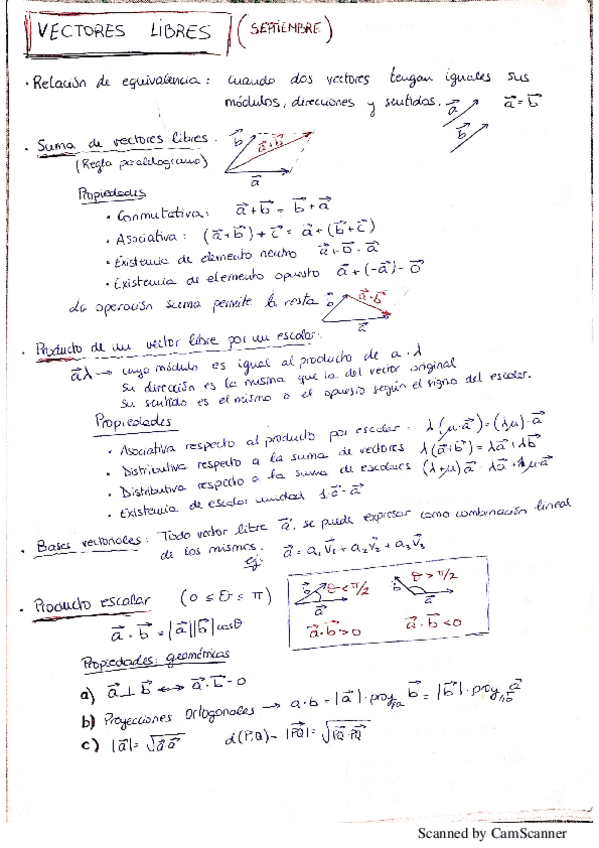 VECTORES LIBRES (SEPTIEMBRE)
· Relación de equivalencia: cuando dos vectores tengan iguales sus
módulos, direcciones y sentidos. a⃗ b⃗ a⃗ = b⃗
· Suma de vectores libres.
(Regla paralelogramo)
b⃗ a⃗+b⃗ a⃗
Propiedades
· Conmutativa: a⃗+b⃗ = b⃗+a⃗
· Asociativa: (a⃗+b⃗)+c⃗ = a⃗+(b⃗+c⃗)
· Existencia de elemento neutro a⃗+0⃗ = a⃗
· Existencia de elemento opuesto a⃗+(-a⃗) = 0⃗
La operación suma permite la resta b⃗ a⃗-b⃗ a⃗
· Producto de un vector libre por un escalar.
a⃗λ → cuyo módulo es igual al producto de a·λ
su dirección es la misma que la del vector original
su sentido es el mismo o el opuesto según el signo del escalar.
Propiedades
· Asociativa respecto al producto por escalar: λ(μ·a⃗)=(λμ)·a⃗
· Distributiva respecto a la suma de vectores λ(a⃗+b⃗)=λa⃗+λb⃗
· Distributiva respecto a la suma de escalares (λ+μ)a⃗ = λa⃗+μ·a⃗
· Existencia de escalar unidad 1·a⃗=a⃗
· Bases vectoriales: Todo vector libre a⃗, se puede expresar como combinación lineal
de los mismos. ej: a⃗ = a₁v⃗₁ + a₂v⃗₂ + a₃v⃗₃
· Producto escalar (0 ≤ θ ≤ π)
a⃗·b⃗ = |a⃗||b⃗|cosθ
b⃗ θ<π/2 a⃗ a⃗·b⃗>0
b⃗ θ>π/2 a⃗ a⃗·b⃗<0
Propiedades geométricas
a) a⃗⊥b⃗ ↔ a⃗·b⃗=0
b) Proyecciones Ortogonales → a·b = |a⃗|·proy a⃗ b⃗ = |b⃗|·proy b⃗ a⃗
c) |a⃗| = √a⃗·a⃗ d(P,Q) = |PQ⃗| = √PQ⃗·PQ⃗
Scanned by CamScanner